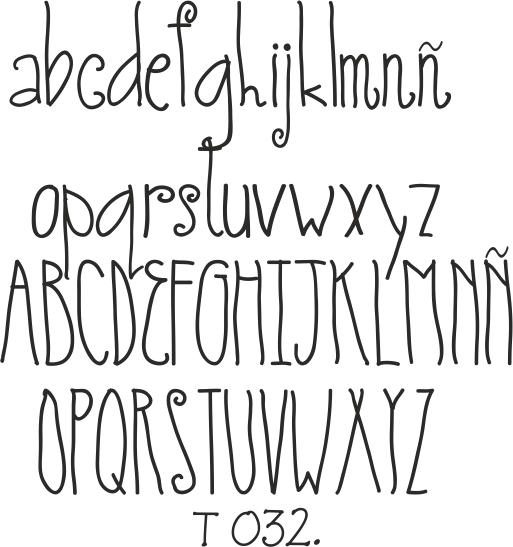 abcdefghijklmnñ
opqrstuvwxyz
ABCDEFGHIJKLMNÑ
OPQRSTUVWXYZ
T 032.